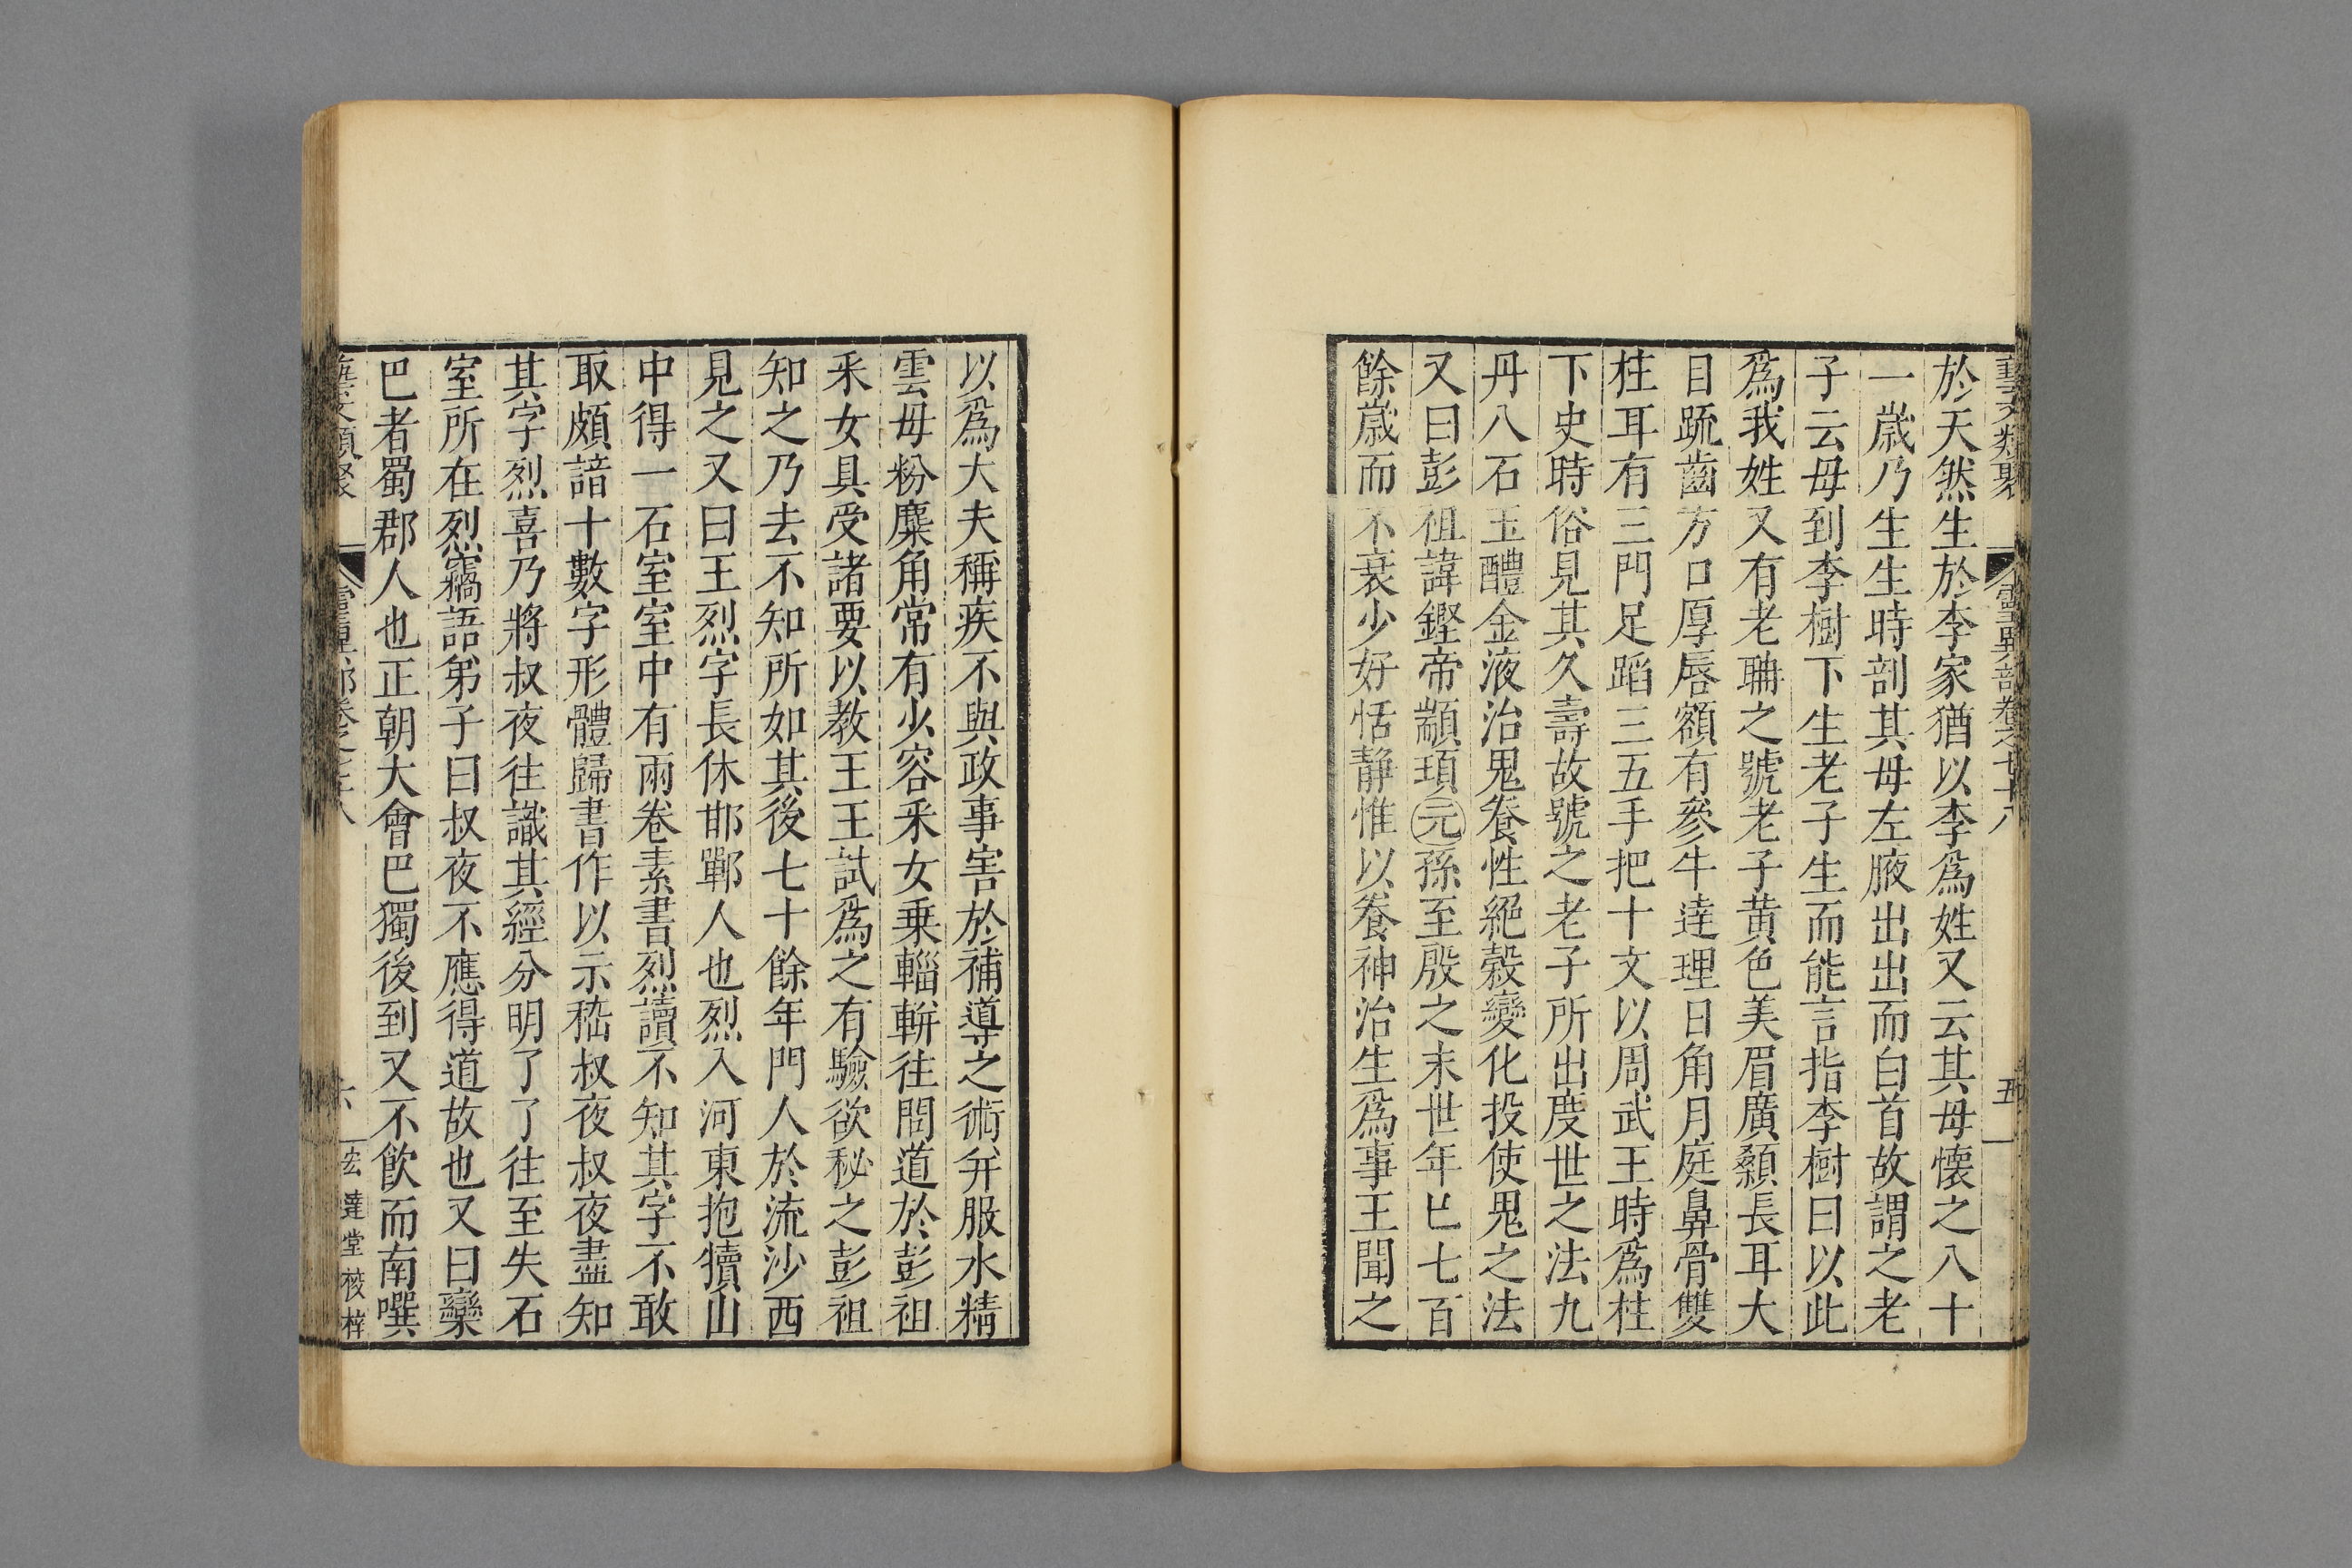 藝文類聚 靈異部卷之七十八 五
於天然生於李家猶以李爲姓又云其母懷之八十
一歲乃生生時剖其母左腋出出而白首故謂之老
子云母到李樹下生老子生而能言指李樹曰以此
爲我姓又有老聃之號老子黃色美眉廣顙長耳大
目疏齒方口厚唇額有參牛達理日角月庭鼻骨雙
柱耳有三門足蹈三五手把十文以周武王時爲柱
下史時俗見其久壽故號之老子所出度世之法九
丹八石玉醴金液治鬼養性絕穀變化投使鬼之法
又曰彭祖諱鏗帝顓頊元孫至殷之末世年已七百
餘歲而不衰少好恬靜惟以養神治生爲事王聞之
以爲大夫稱疾不與政事害於補導之術并服水精
雲母粉麋角常有少容釆女乗輜軿往問道於彭祖
釆女具受諸要以教王王試爲之有驗欲秘之彭祖
知之乃去不知所如其後七十餘年門人於流沙西
見之又曰王烈字長休邯鄲人也烈入河東抱犢山
中得一石室室中有兩卷素書烈讀不知其字不敢
取頗諳十數字形體歸書作以示嵇叔夜叔夜盡知
其字烈喜乃將叔夜往識其經分明了了往至失石
室所在烈竊語弟子曰叔夜不應得道故也又曰欒
巴者蜀郡人也正朝大會巴獨後到又不飲而南噀
藝文類聚 靈異部卷之七十八 六 宏達堂校梓